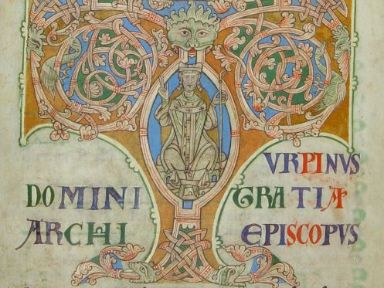 TVRPINVS
DOMINI GRATIA
ARCHI EPISCOPVS